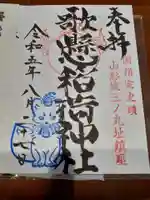 奉拝
国指定史跡
山形城三ノ丸址鎮座
歌懸稲荷神社
令和五年八月二十七日